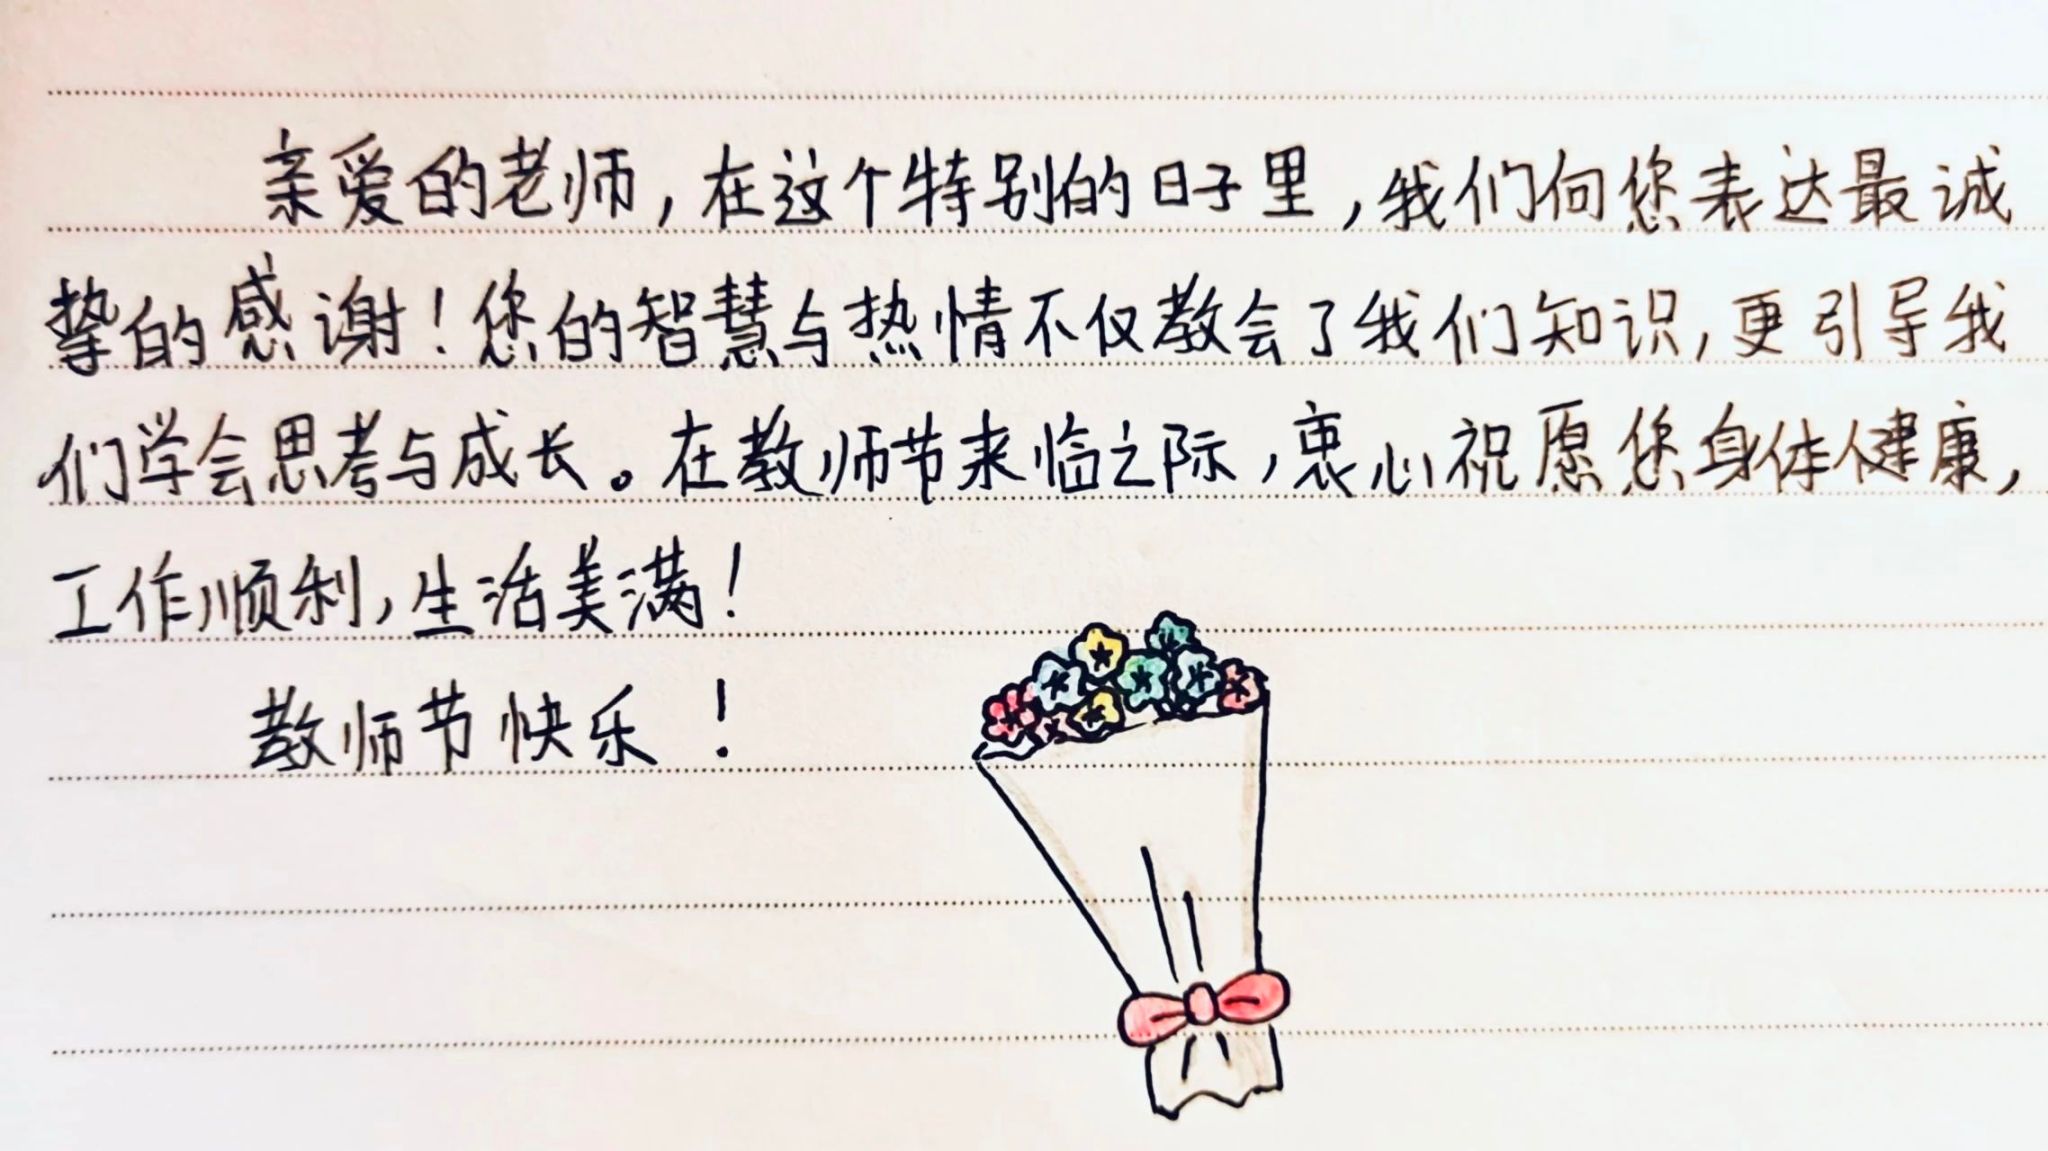 亲爱的老师，在这个特别的日子里，我们向您表达最诚
挚的感谢！您的智慧与热情不仅教会了我们知识，更引导我
们学会思考与成长。在教师节来临之际，衷心祝愿您身体健康，
工作顺利，生活美满！
教师节快乐！